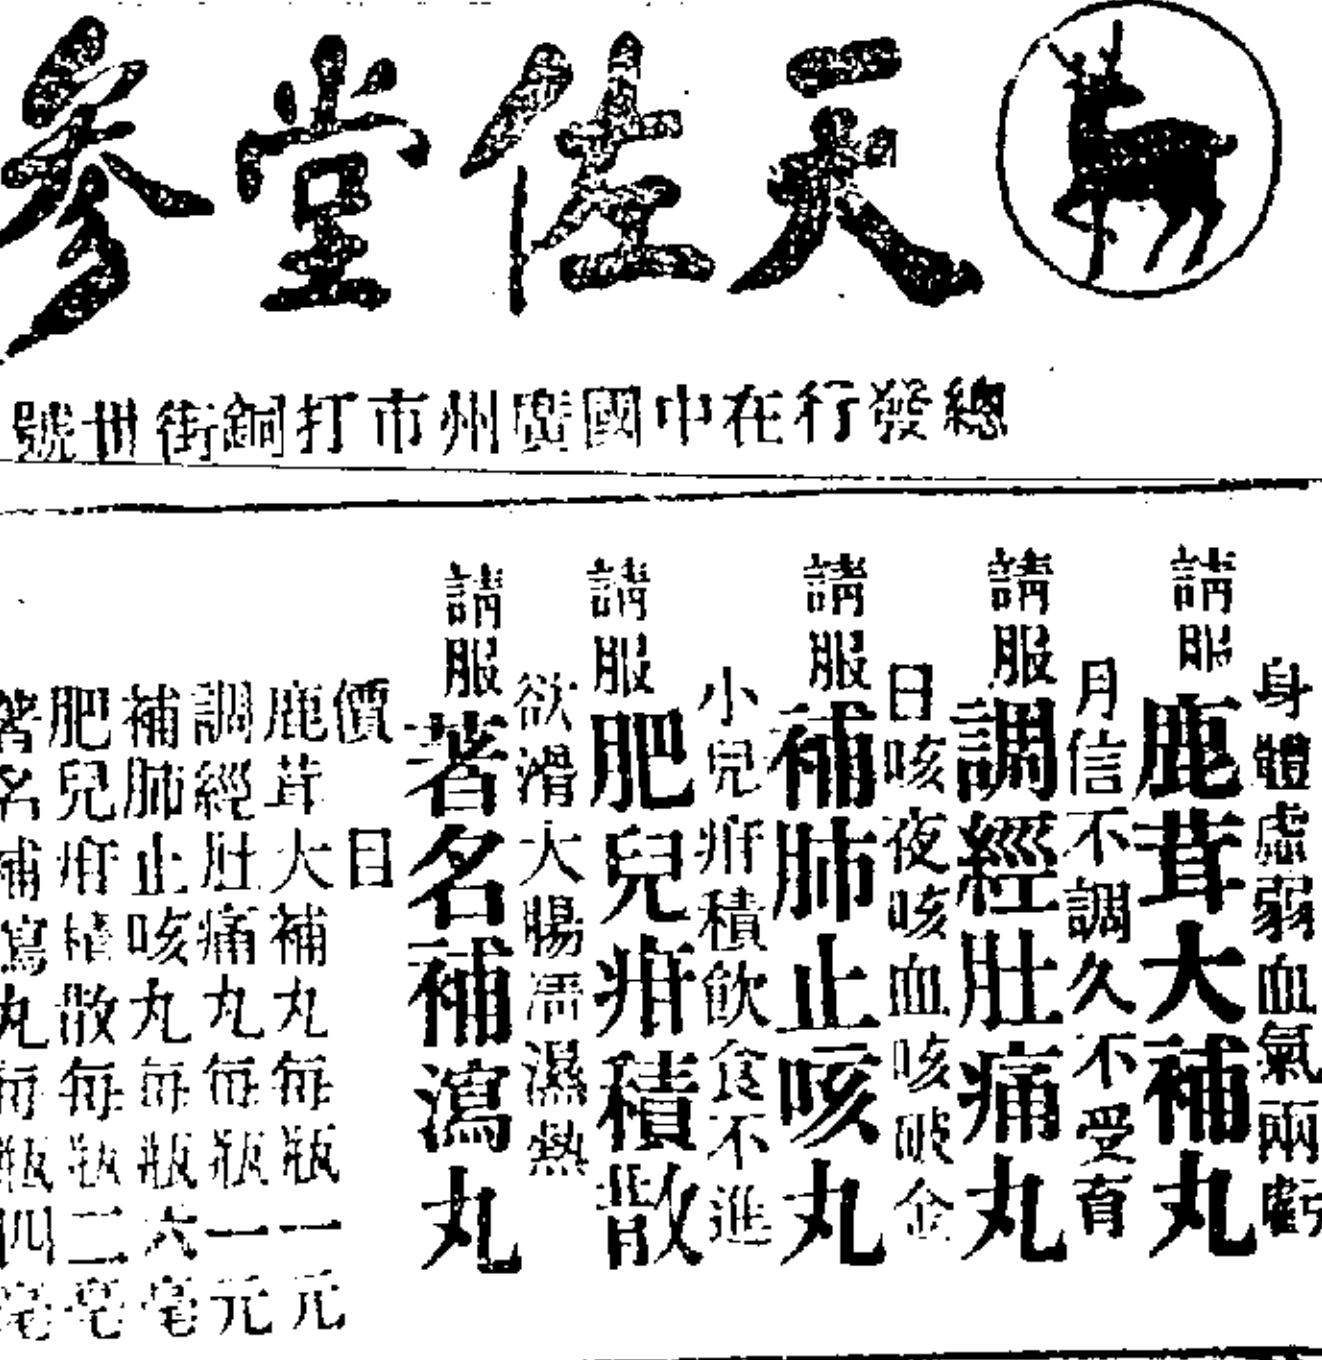 天佐堂參
總發行在中國廣州市打銅街卌號
身體虛弱血氣兩虧
請服鹿茸大補丸
月信不調久不受育
請服調經肚痛丸
日咳夜咳血咳破金
請服補肺止咳丸
小兒疳積飲食不進
請服肥兒疳積散
欲滑大腸清濕熱
請服著名補瀉丸
價目
鹿茸大補丸每瓶一元
調經肚痛丸每瓶一元
補肺止咳丸每瓶六毫
肥兒疳積散每瓶二毫
著名補瀉丸每瓶四毫